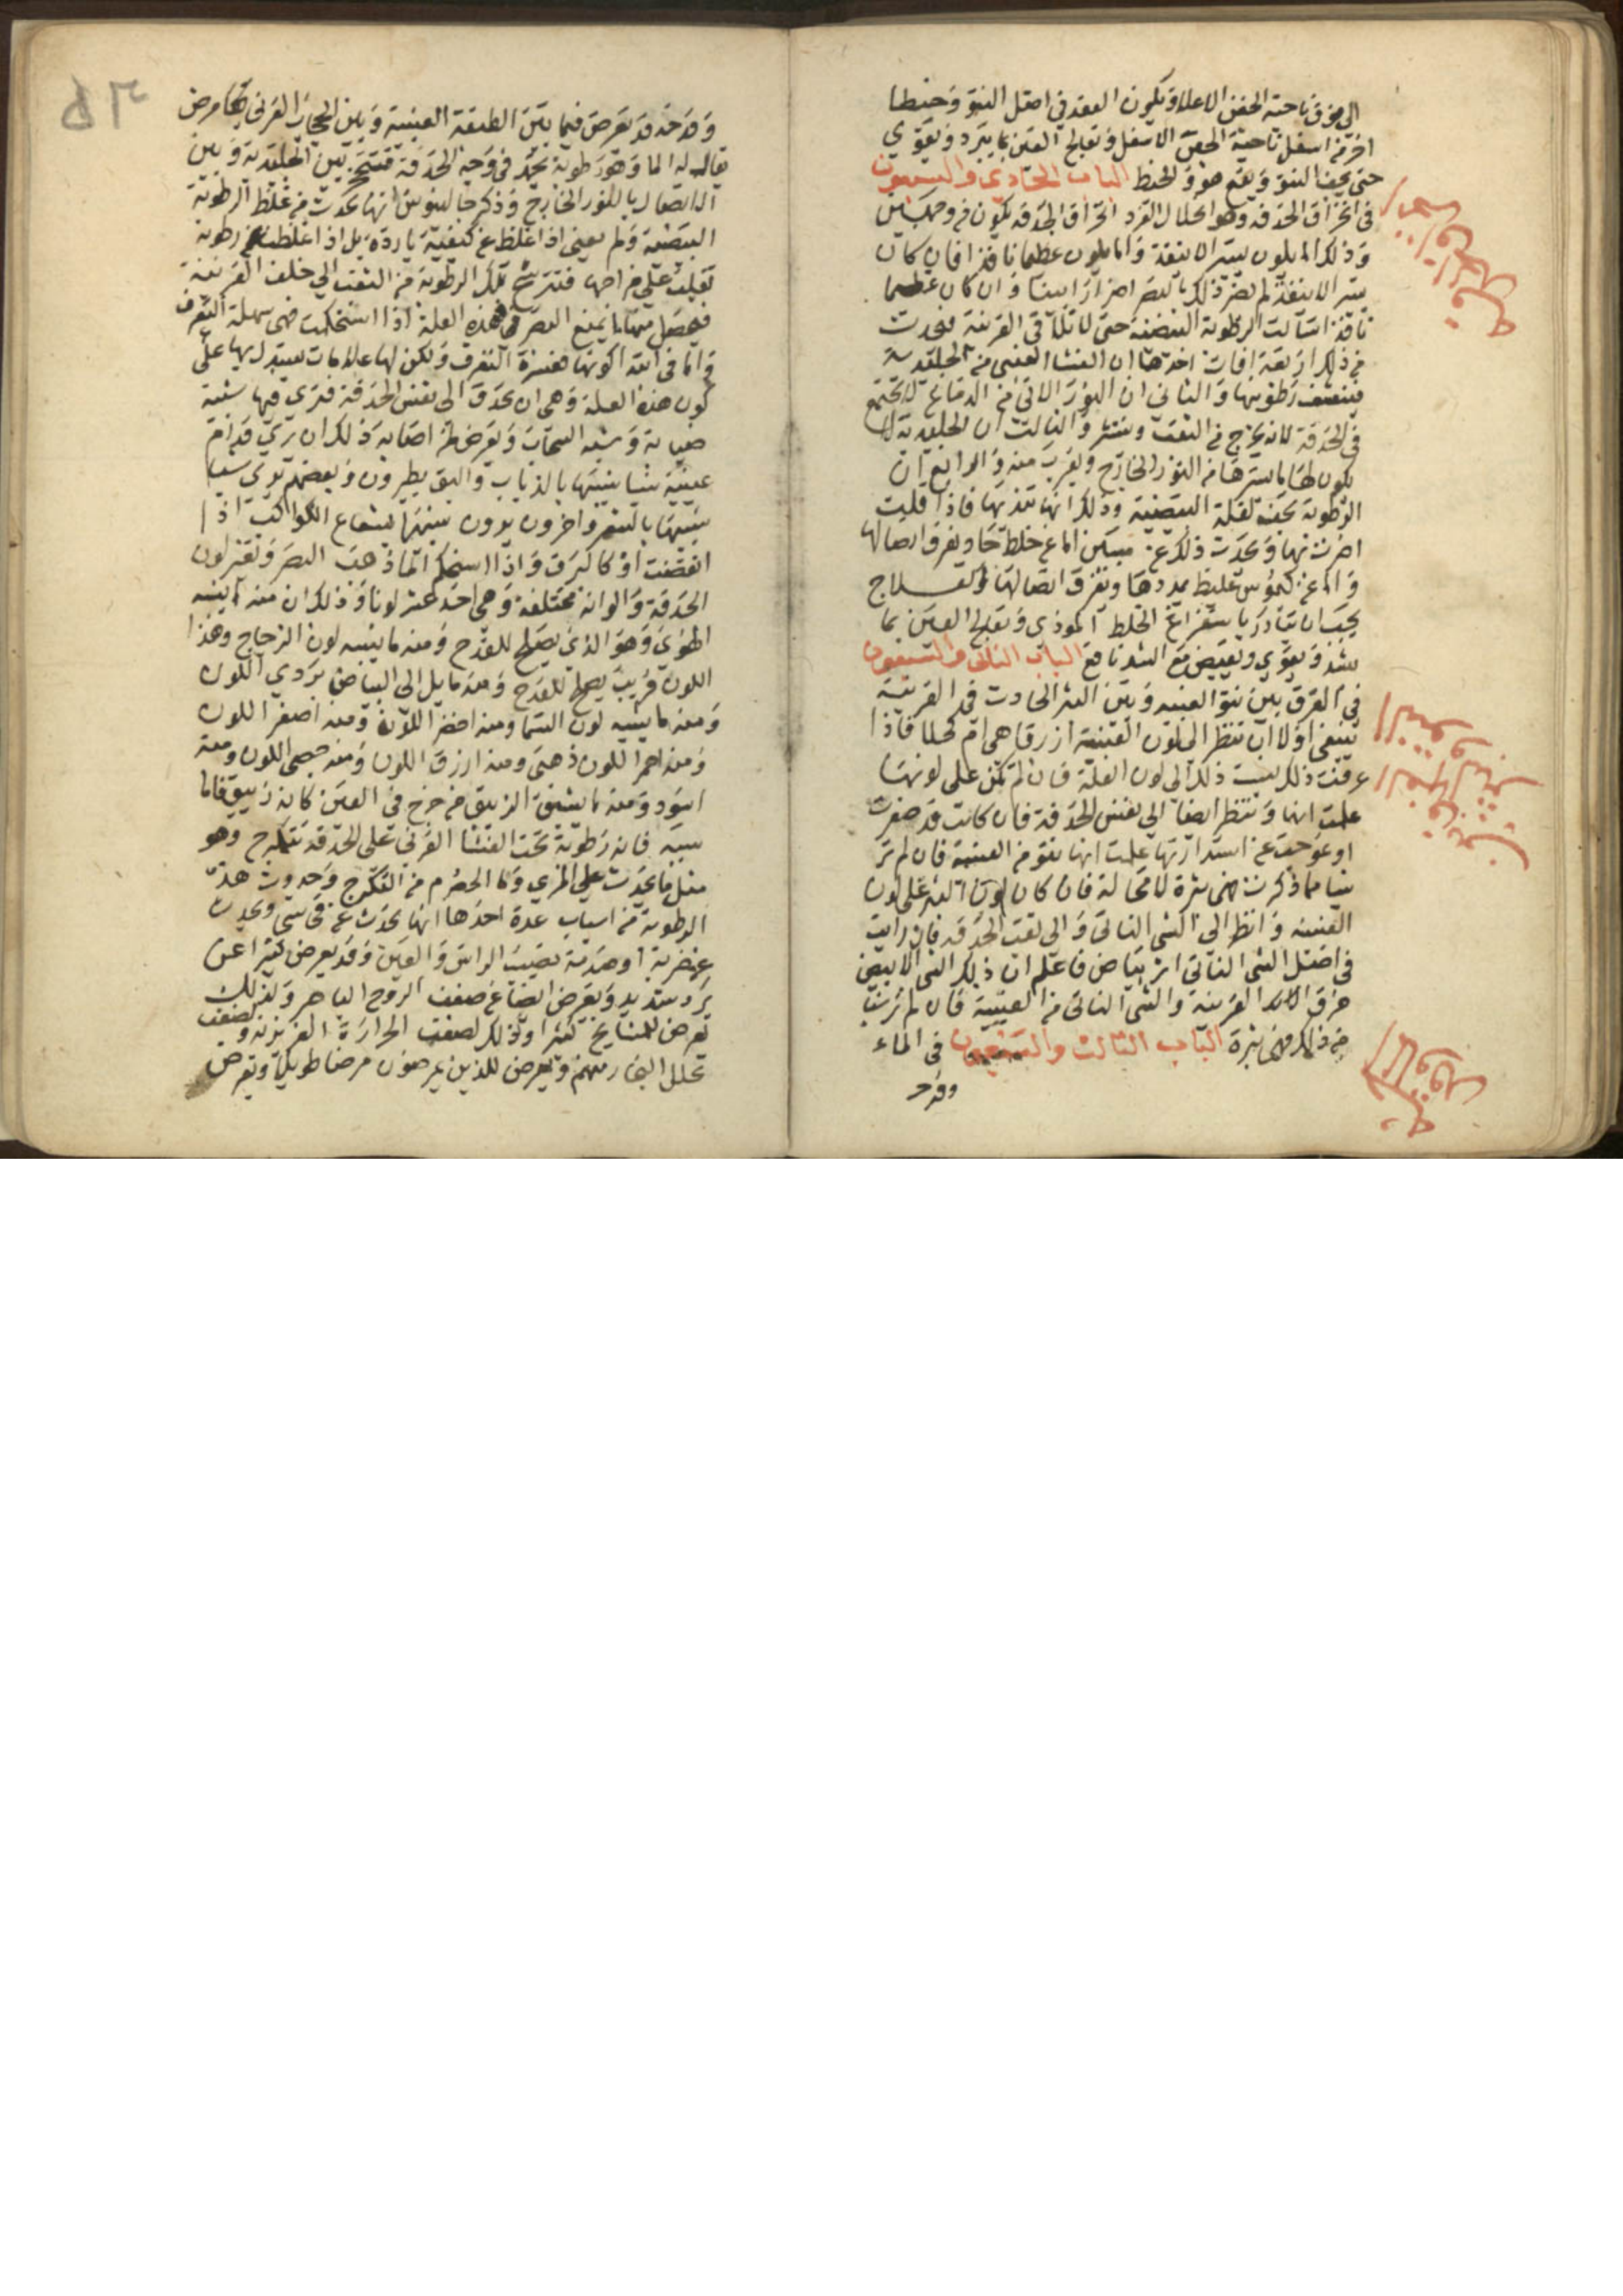 الى فوق ناحية الجفن الاعلا ويكون العقد في اصل النتو وخيطا
اخر من اسفل ناحية الجفن الاسفل وتعالج العين بما يبرد ويقوي
حتى يجف النتو ويقع هو والخيط الباب الحادي والتسعون
في انخراق الحدقة وهو انحلال الفرد انخراق الحدقة يكون من
وذلك اما يكون يسير لا ينفذ واما يكون عظيما نافذا فان كان
يسير لا ينفذ لم يضر ذلك بالبصر اضرارا بينا وان كان عظيما
نافذا سالت الرطوبة البيضية حتى تلاقى القرنية فيحدث
من ذلك اربعة افات احدها ان الغشا العنبي من الجليدية
فينشف رطوبتها والثاني ان النور الاتي من الدماغ لا يجتمع
في الحدقة لانه يخرج من الثقب وينتثر والثالث ان الجليدية لا
يكون لها ما يسترها من النور الخارج ويقرب منه والرابع ان
الرطوبة تجف لقلة البيضية وذلك انها تنديها فاذا قلت
اضرت بها ويحدث ذلك عن اما عن خلط حاد يفرق اتصالها
واما عن كيموس غليظ يمددها ويفرق اتصالها والعلاج
يجب ان تبادر باستفراغ الخلط الموذي وتعالج العين بما
يشد ويقوي ويقبض مع الشد نافع الباب الثاني والتسعون
في الفرق بين نتو العنبيه وبين البثر الحادث في القرنية
ينبغي اولا ان تنظر الى لون العنبية ازرقا هي ام كحلا فاذا
عرفت ذلك نسبت ذلك الى لون العلة فان لم تكن على لونها
علمت انها وتنظر ايضا الى نفس الحدقة فان كانت قد صغرت
او عوجت عن استدارتها علمت انها نتو من العنبية فان لم تر
شيا مما ذكرت فهى بثرة لا محالة فان كان لون البثر على لون
العنبيه وانظر الى الشي الناتي والى ثقب الحدقه فان رايت
في اصل الشي الناتي اثر بياض فاعلم ان ذلك الشي الابيض
خرق القرنية والشي الناتي من العنبية فان لم تر شيا
من ذلك فهى بثرة الباب الثالث والتسعون في الماء
وقد
وقد فيما بين الطبقة العنبية وبين الحجاب القرني مرض
يقال له الما وهو رطوبة تجمد في وجه الحدقة فتحجز بين الجليدية وبين
الاتصال بالنور الخارج وذكر جالينوس انها تحدث من غلظ الرطوبة
البيضية ولم يعني اذا غلظ عن كيفية باردة بل اذا غلظت رطوبة
تغلب على مزاجها فتترشح تلك الرطوبة من الثقب الى خلف القرنية
فيحصل منها ما يمنع البصر وهذه العلة اذا استحكمت فهى سهلة التعرف
واما في ابتدا كونها فعسرة التعرف ولكن لها علامات يستدل بها على
كون هذه العلة وهى ان يحدق الى نفس الحدقة فترى فيها شبه
ضبابة وشبه السحاب ويعرض لمن اصابه ذلك ان يرى قدام
عينيه شيا شبيها بالذباب والبق يطيرون وبعضهم يرى شيا
شبيها بالشعر واخرون يرون شبيها بشعاع الكواكب اذا
انقضت او كالبرق واذا استحكم الما ذهب البصر وتغير لون
الحدقة والوانه مختلفة وهى احد عشر لونا وذلك ان منه ما يشبه
الهوي وهو الذي يصلح للقدح ومنه ما يشبه لون الزجاج وهذا
اللون قريب يصلح للقدح ومنه مايل الى البياض بردي اللون
ومنه ما يشبه لون السما ومنه اخضر اللون ومنه اصفر اللون
ومنه احمر اللون ذهبى ومنه ازرق اللون ومنه جصي اللون ومنه
اسود ومنه ما يشبه الزيبق في العين كانه زيبق فاما
سببه فانه رطوبة تحت الغشا القرني على الحدقة وهو
مثل ما يحدث على المري وما الحصرم من التكرج وحدوث هذه
الرطوبة من اسباب عدة احدها انها تحدث عن قي ويحدث
عن ضربة او صدمة تصيب الراس والعين وقد يعرض كثيرا عن
برد شديد ويعرض ايضا عن ضعف الروح الباصر وكذلك
تعرض للمشايخ كثيرا وذلك لضعف الحرارة الغريزية ولضعف
تحلل البخار منهم وتعرض للذين يمرضون مرضا طويلا ويعرض